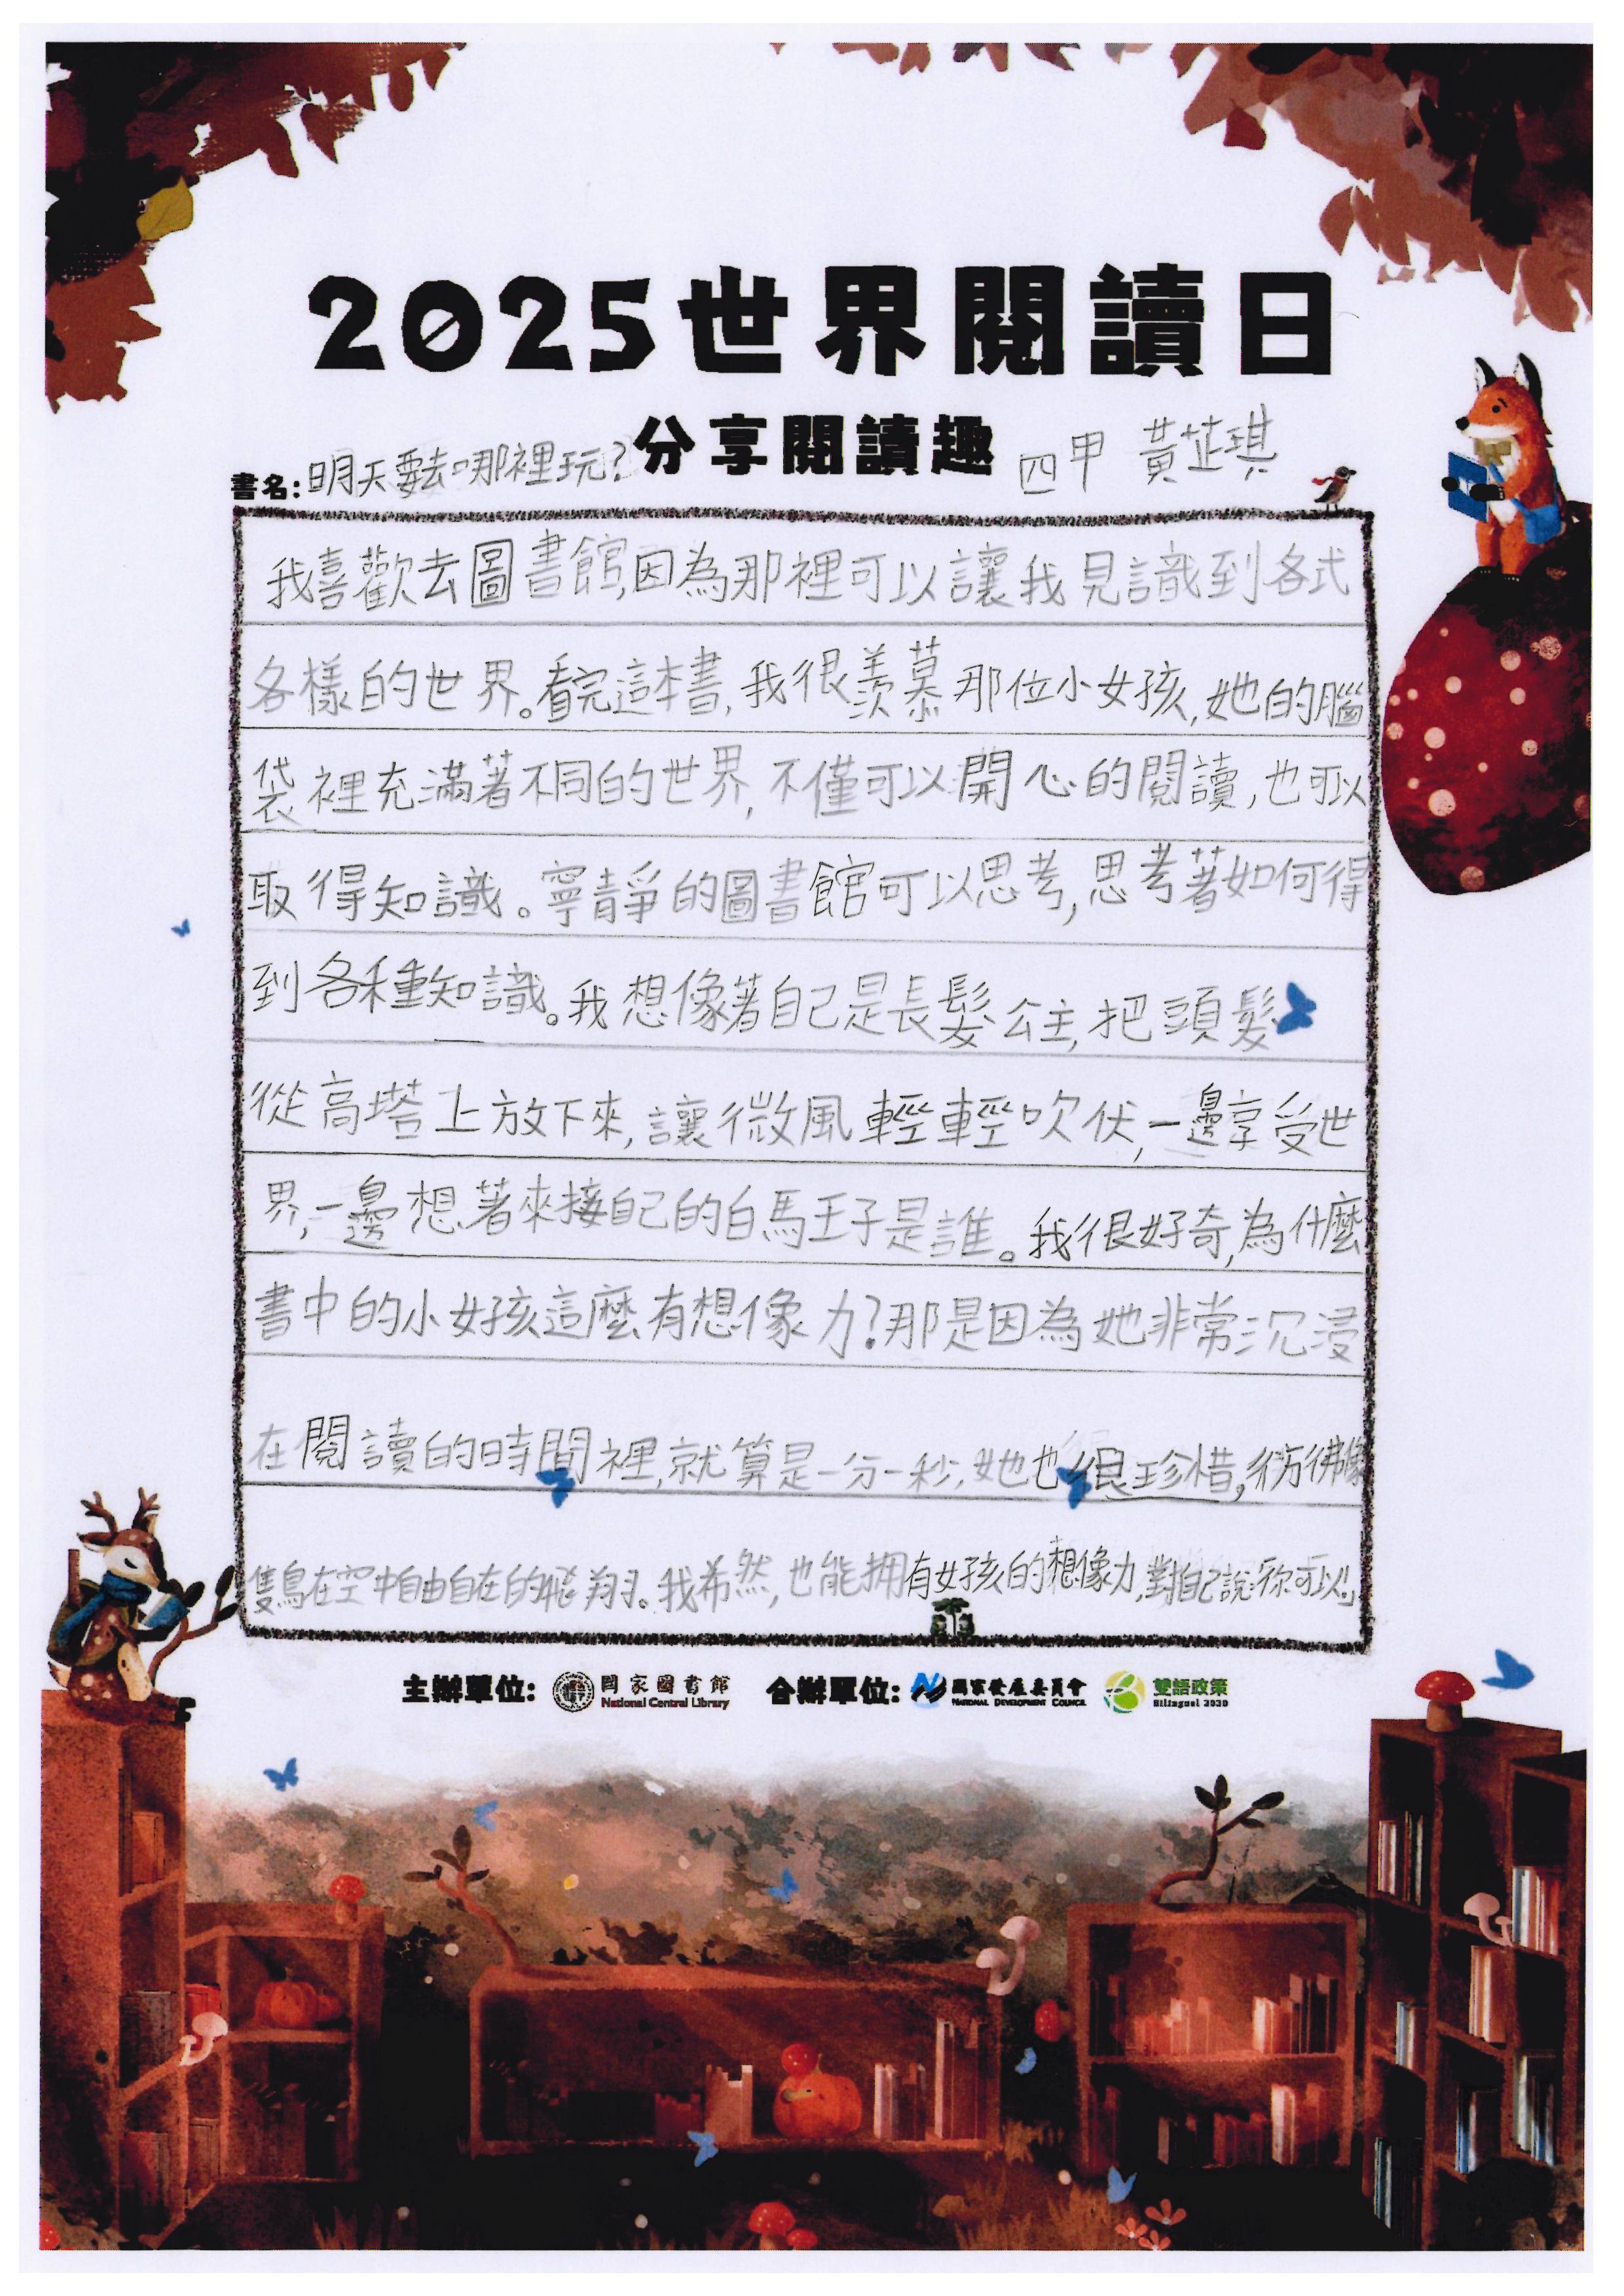 2025世界閱讀日
分享閱讀趣
四甲 黃芷琪
書名:明天要去哪裡玩?
我喜歡去圖書館,因為那裡可以讓我見識到各式
各樣的世界。看完這本書,我很羨慕那位小女孩,她的腦
袋裡充滿著不同的世界,不僅可以開心的閱讀,也可以
取得知識。寧靜的圖書館可以思考,思考著如何得
到各種知識。我想像著自己是長髮公主,把頭髮
從高塔上放下來,讓微風輕輕吹伏,一邊享受世
界,一邊想著來接自己的白馬王子是誰。我很好奇,為什麼
書中的小女孩這麼有想像力?那是因為她非常沉浸
在閱讀的時間裡,就算是一分一秒,她也很珍惜,彷彿像
隻鳥在空中自由自在的飛翔。我希然,也能擁有女孩的想像力,對自己說:你可以!」
主辦單位: 國家圖書館 National Central Library 合辦單位: 國家發展委員會 National Development Council 雙語政策 Bilingual 2030